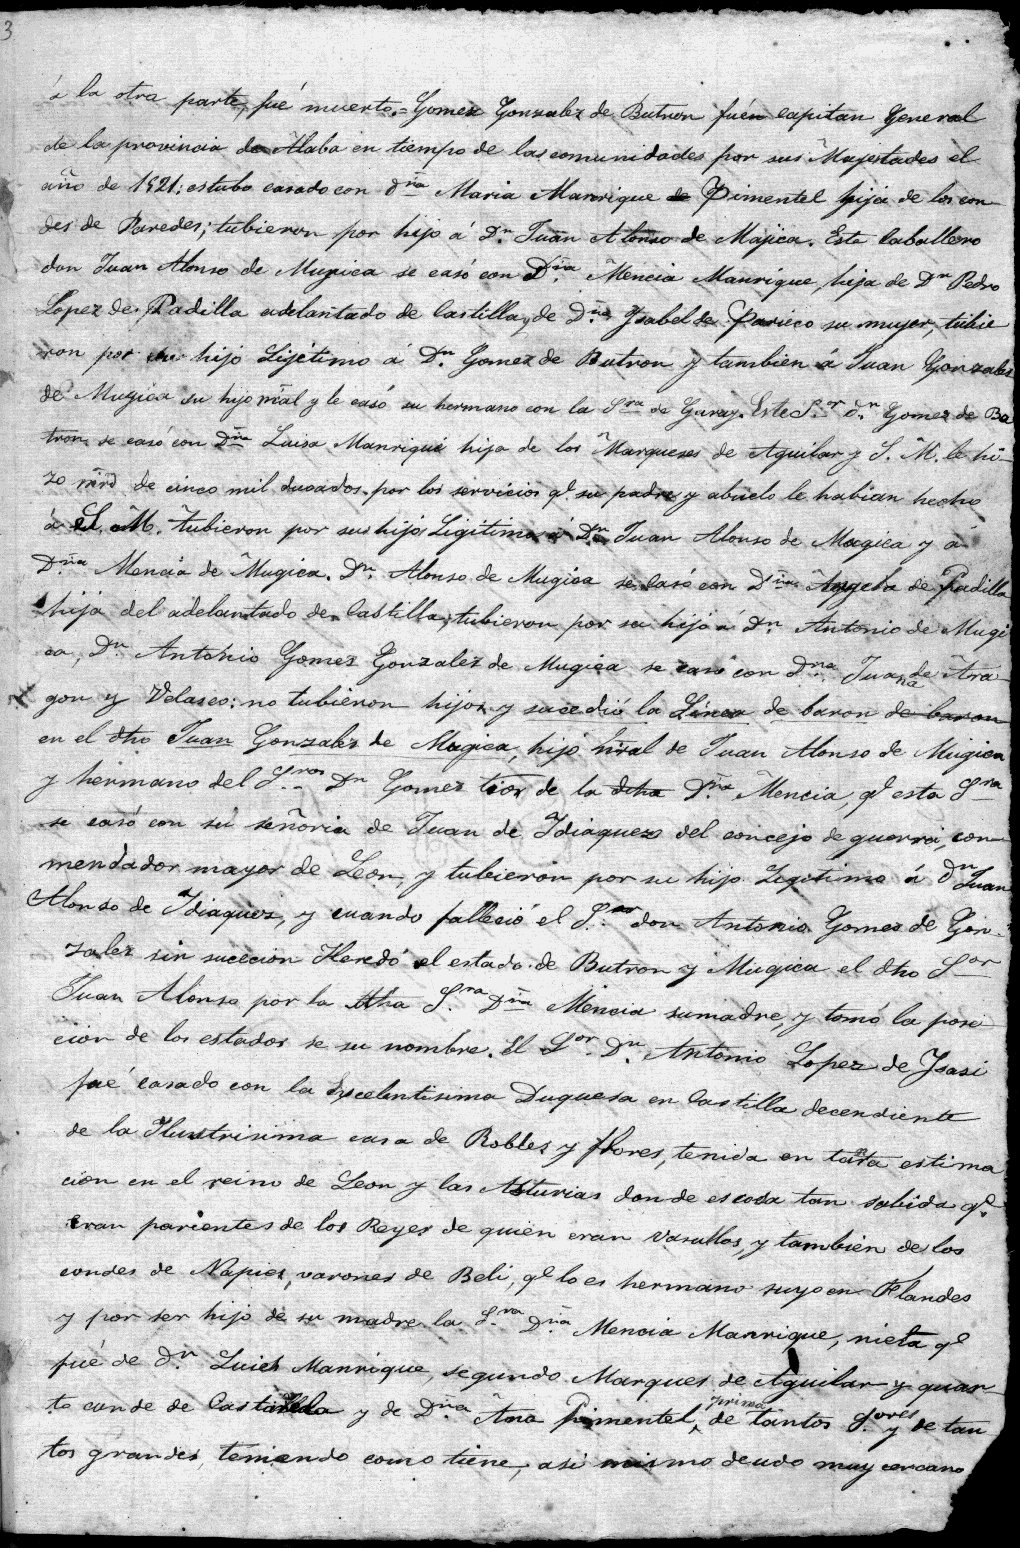 3
á la otra parte, fué muerto.=Gomez Gonzalez de Butron fué capitan General
de la provincia de Alaba en tiempo de las comunidades por sus Majestades el
año de 1521; estubo casado con dña Maria Manrique de Pimentel hija de los con
des de Paredes; tubieron por hijo á Dn. Juan Alonso de Mujica. Este Caballero
don Juan Alonso de Mugica se casó con Dña. Mencia Manrique, hija de Dn Pedro
Lopez de Padilla adelantado de Castilla, de Dña Ysabel de su mujer, tubie
ron por su hijo Lijitimo á Dn. Gomez de Butron y tambien á Juan Gonzalez
de Mugica su hijo y le casó su hermano con la Sra de Garay. Este S.or d.n Gomez de Bu
tron, se casó con Dña Luisa Manrique hija de los Marqueses de Aguilar y S. M. le hi-
zo mrd de cinco mil ducados por los servicios q.e su padre y abuelo le habian hecho
á S. M. tubieron por sus hijos Legitimo á Dn. Juan Alonso de Mugica y á
Dña Mencia de Mugica. Dn. Alonso de Mugica se casó con Dña Angela de Padilla
hija del adelantado de Castilla; tubieron por su hijo á Dn Antonio de Mugi
ca, Dn Antonio Gomez Gonzalez de Mugica se casó con Dña. Juana de Ara
gon y Velasco: no tubieron hijos y sucedió la Linea de baron de baron
en el dho Juan Gonzalez de Mugica, hijo de Juan Alonso de Mugica
y hermano del S.ros Dn Gomez tios de la dcha Dña Mencia, q.e esta Sra
se casó con su señoria de Juan de Idiaquez del concejo de guerra, con
mendador mayor de Leon, y tubieron por su hijo Legitimo á Dn Juan
Alonso de Idiaquez, y cuando falleció el S.or don Antonio Gomez de Gon-
zalez sin sucecion Heredó el estado de Butron y Mugica el dho Sor
Juan Alonso por la dha S.ra Dña Mencia su madre, y tomó la pose
cion de los estados se su nombre. El S.or Dn Antonio Lopez de Ysasi
fué casado con la Excelentisima Duquesa en Castilla decendiente
de la Ilustrisima casa de Robles y flores, tenida en tanta estima
cion en el reino de Leon y las Asturias donde es cosa tan sabida q.e
eran parientes de los Reyes de quien eran vasallos, y tambien de los
condes de Napies, varones de Beli, q.e lo es hermano suyo en Flandes
y por ser hijo de su madre la S.ra Dña Mencia Manrique, nieta q.e
fué de d.n Luich Manrique, segundo Marques de Aguilar y quar-
to conde de Castañeda y de Dña Ana Pimentel, prima de tantos S.ores y de tan
tos grandes, teniendo como tiene, asi mismo deudo muy cercano